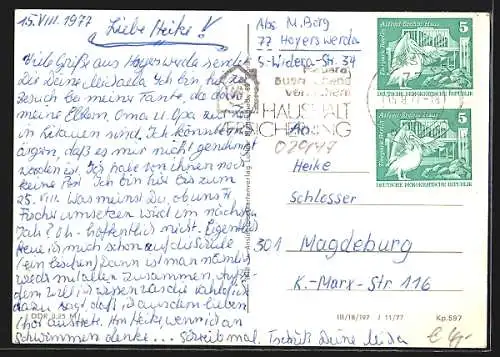 15.VIII.1977
Liebe Heike!
Viele Grüße aus Hoyerswerda sendet
Dir Deine Ich bin hier zu
Besuch bei meiner Tante, da doch
meine Eltern, Oma u. Opa zur Kur
in sind. Ich könnte mich
ärgern, daß es mir nicht
worden ist. Ich habe von ihnen noch
keine Post. Ich bin hier bis zum
25.VIII. Was meinst Du, ob uns Fr.
Fischer umsetzen wird im nächsten
Jahr? Oh - hoffentlich nicht. Eigentlich
freue ich mich schon auf die Schule
(ein bißchen) Dann ist man nämlich
wieder mit allen zusammen,
dem will ich wissen
dazu sagt, daß ich aus dem lieben
Chor austrete. Hm Heike, wenn ich an
Schwimmen denke... Schreib mal. Tschüß Deine
Abs. M. Berg
77 Hoyerswerda
S-Widera-Str. 34
HAUSHALT
An
029147
Heike
Schlosser
301 Magdeburg
K.-Marx-Str. 116
Alfred-Brehm-Haus
Tierpark Berlin
5
DEUTSCHE DEMOKRATISCHE REPUBLIK
Alfred-Brehm-Haus
Tierpark Berlin
5
DEUTSCHE DEMOKRATISCHE REPUBLIK
DDR 0,25 M
III/18/197 I 11/77 Kp.597